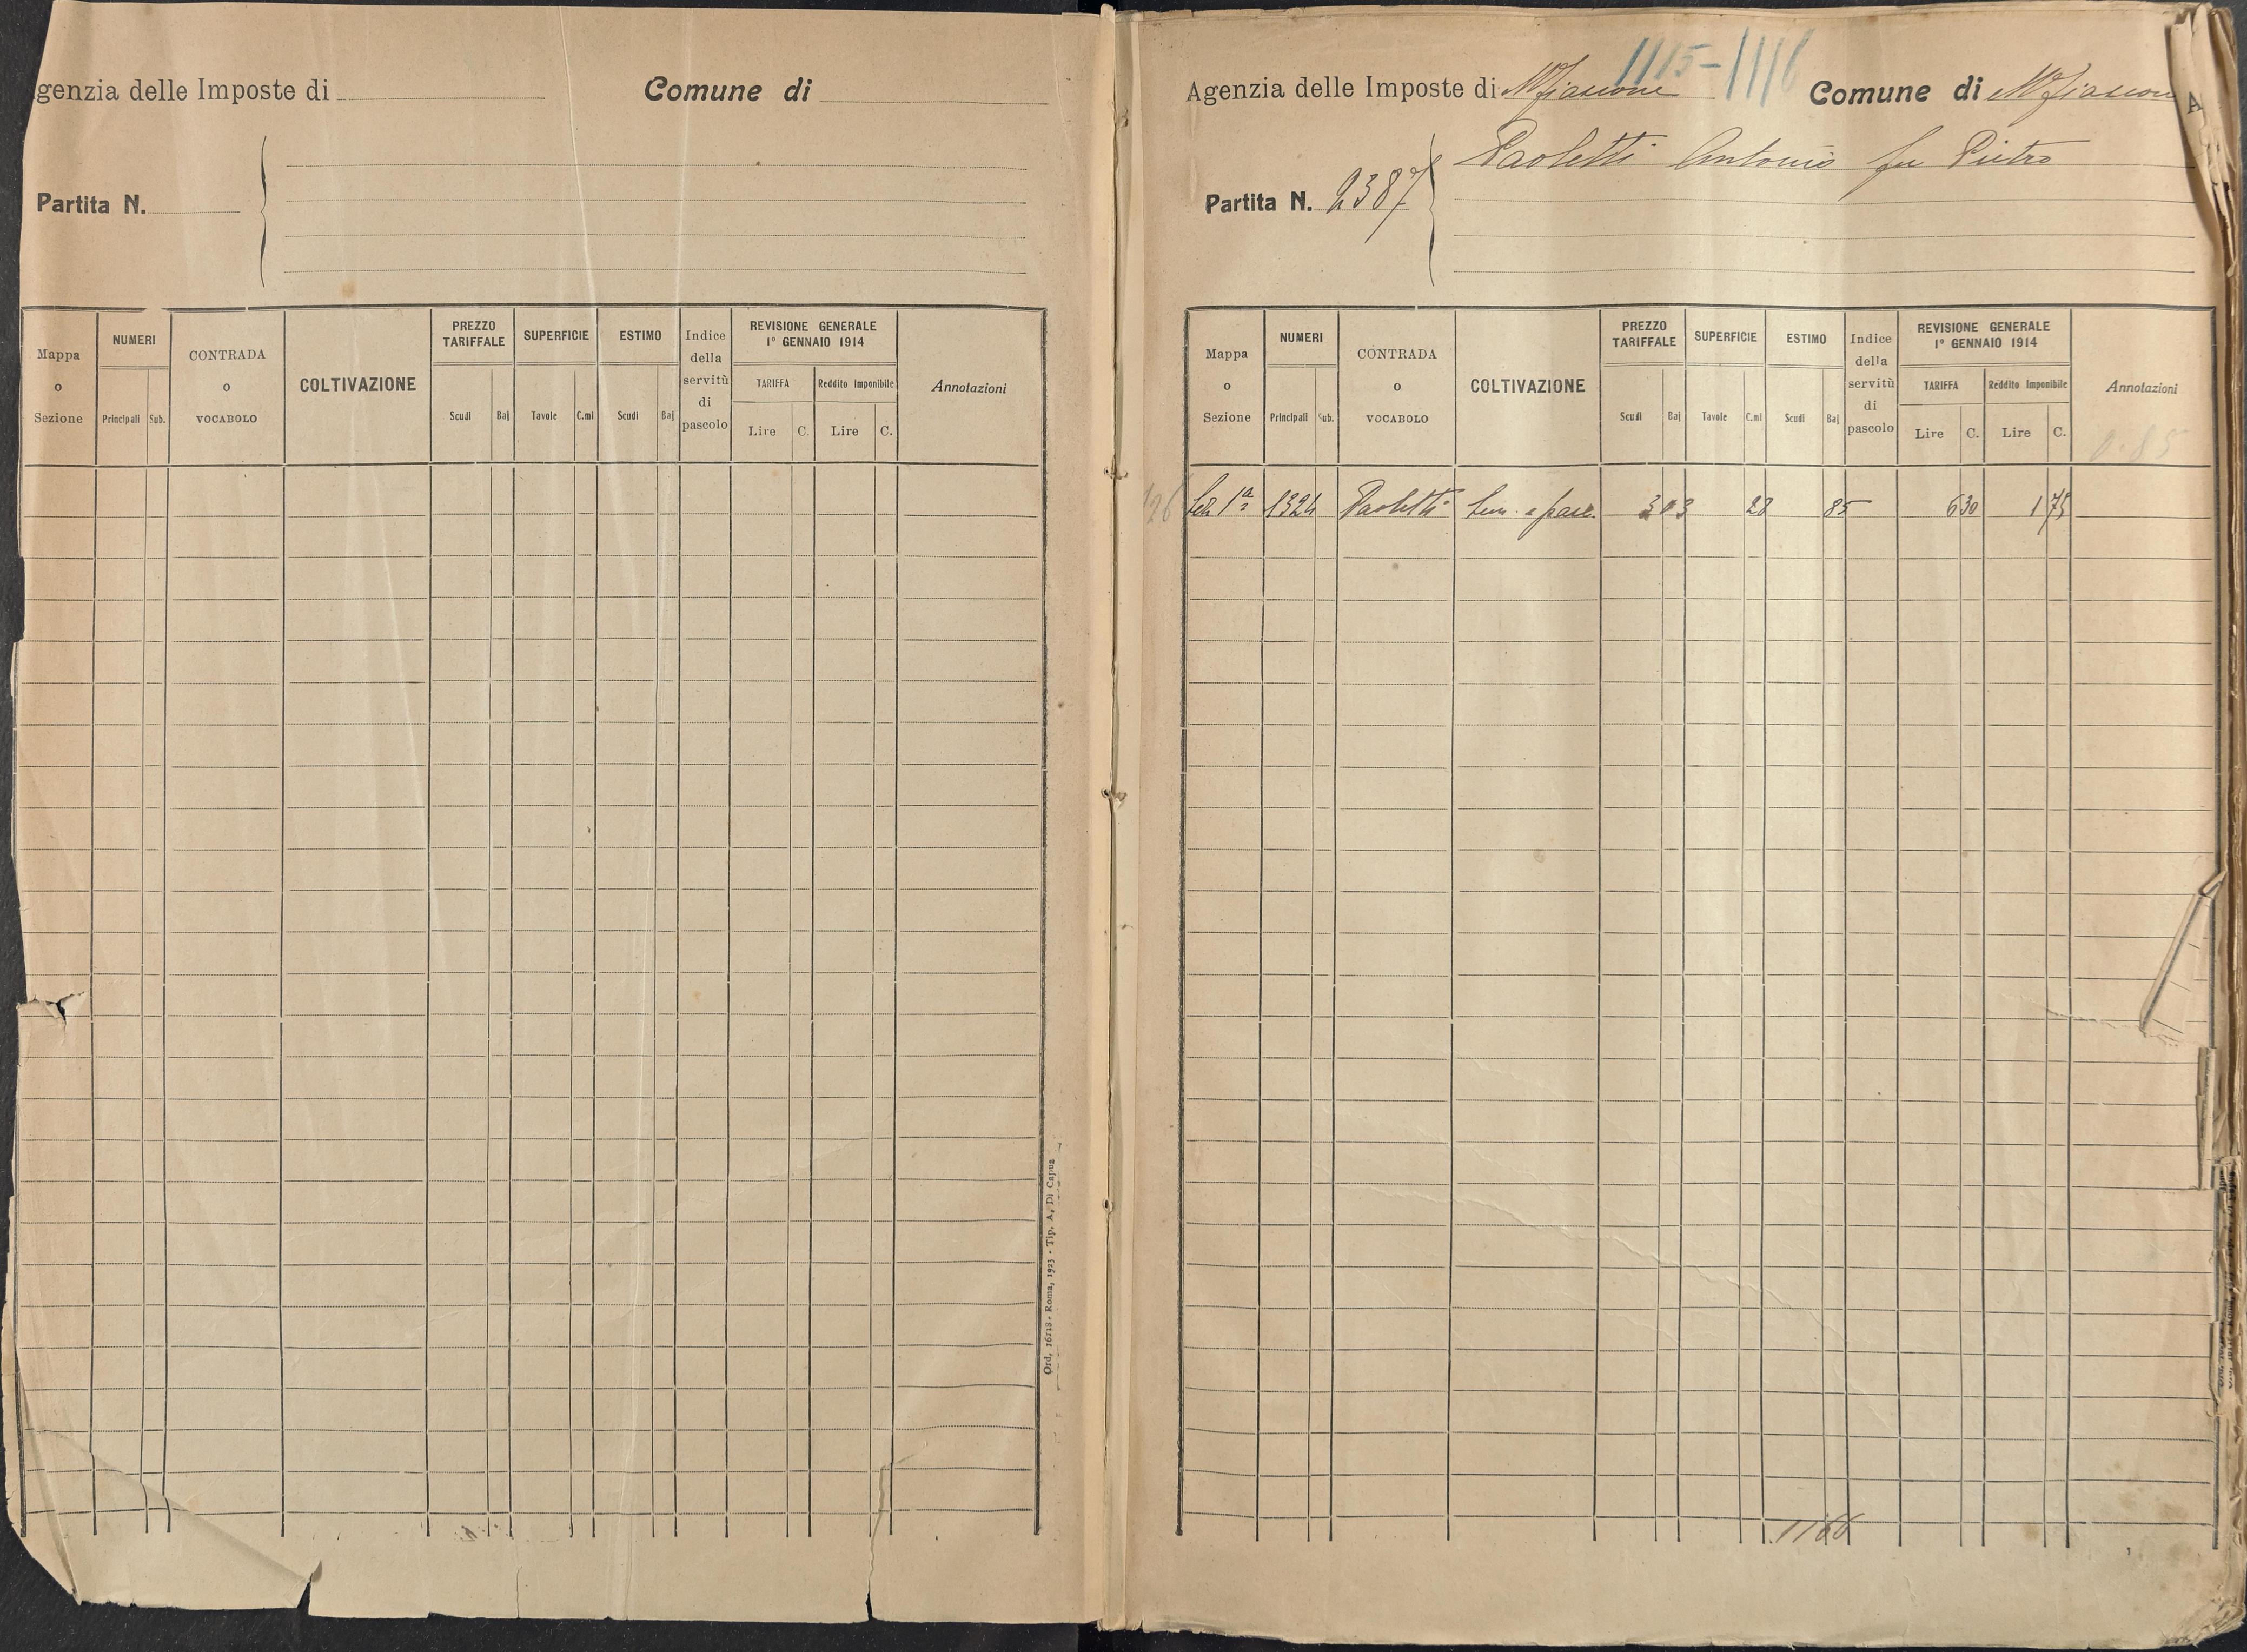 genzia delle Imposte di
Comune di
Partita N.
Mappa o Sezione
NUMERI
Principali Sub.
CONTRADA o VOCABOLO
COLTIVAZIONE
PREZZO TARIFFALE
Scudi Baj
SUPERFICIE
Tavole C.mi
ESTIMO
Scudi Baj
Indice della servitù di pascolo
REVISIONE GENERALE
1° GENNAIO 1914
TARIFFA
Lire C.
Reddito Imponibile
Lire C.
Annotazioni
Ord. 16718 - Roma, 1923 - Tip. A. Di Capua
1115-1116
Agenzia delle Imposte di Mfiascone Comune di Mfiascon
Paoletti Antonio fu Pietro
Partita N. 2387
Mappa o Sezione
NUMERI
Principali Sub.
CONTRADA o VOCABOLO
COLTIVAZIONE
PREZZO TARIFFALE
Scudi Baj
SUPERFICIE
Tavole C.mi
ESTIMO
Scudi Baj
Indice della servitù di pascolo
REVISIONE GENERALE
1° GENNAIO 1914
TARIFFA
Lire C.
Reddito Imponibile
Lire C.
Annotazioni
0.85
126 1ª 1324 Paoletti Sem. e pasc. 3 03 28 85 6 30 1 75
1166